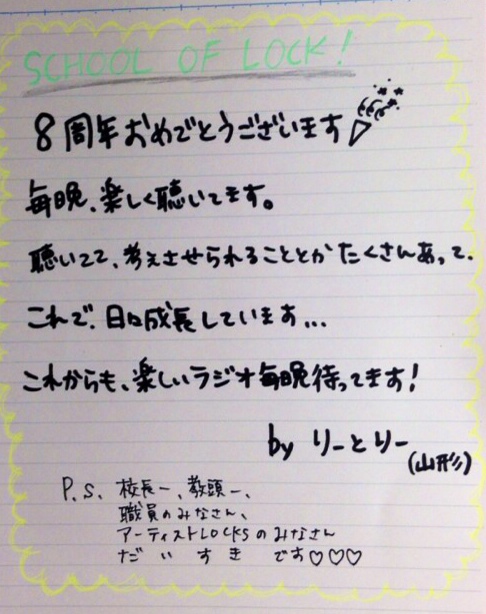 SCHOOL OF LOCK!
8周年おめでとうございます
毎晩、楽しく聴いてます。
聴いてて、考えさせられることとかたくさんあって、
これで、日々成長しています...
これからも、楽しいラジオ毎晩待ってます!
by りーとりー
(山形)
P.S. 校長ー、教頭ー、
職員のみなさん、
アーティストLOCKSのみなさん
だいすきです♡♡♡